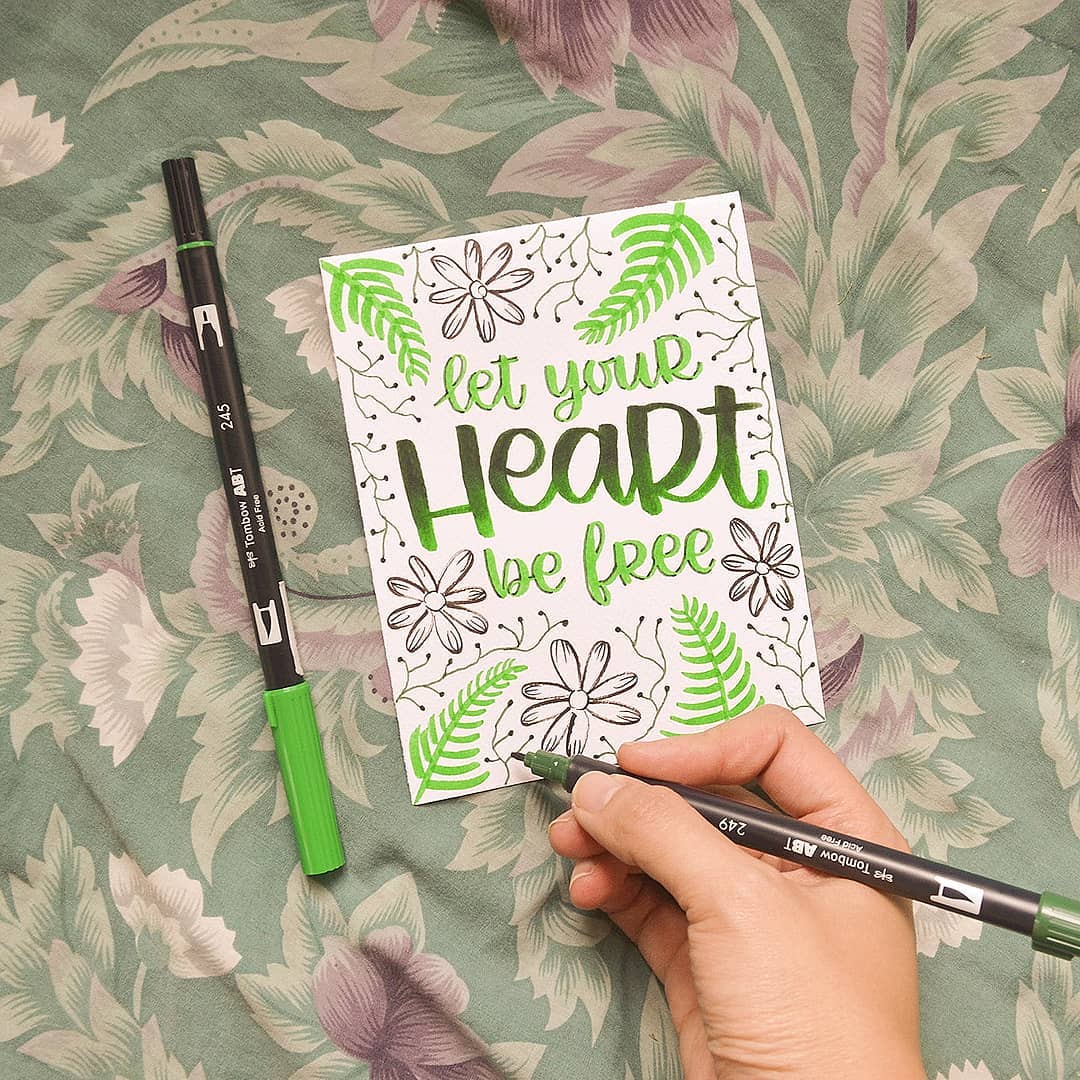 let your
Heart
be free
245
Tombow ABT
Acid Free
249
Tombow ABT
Acid Free